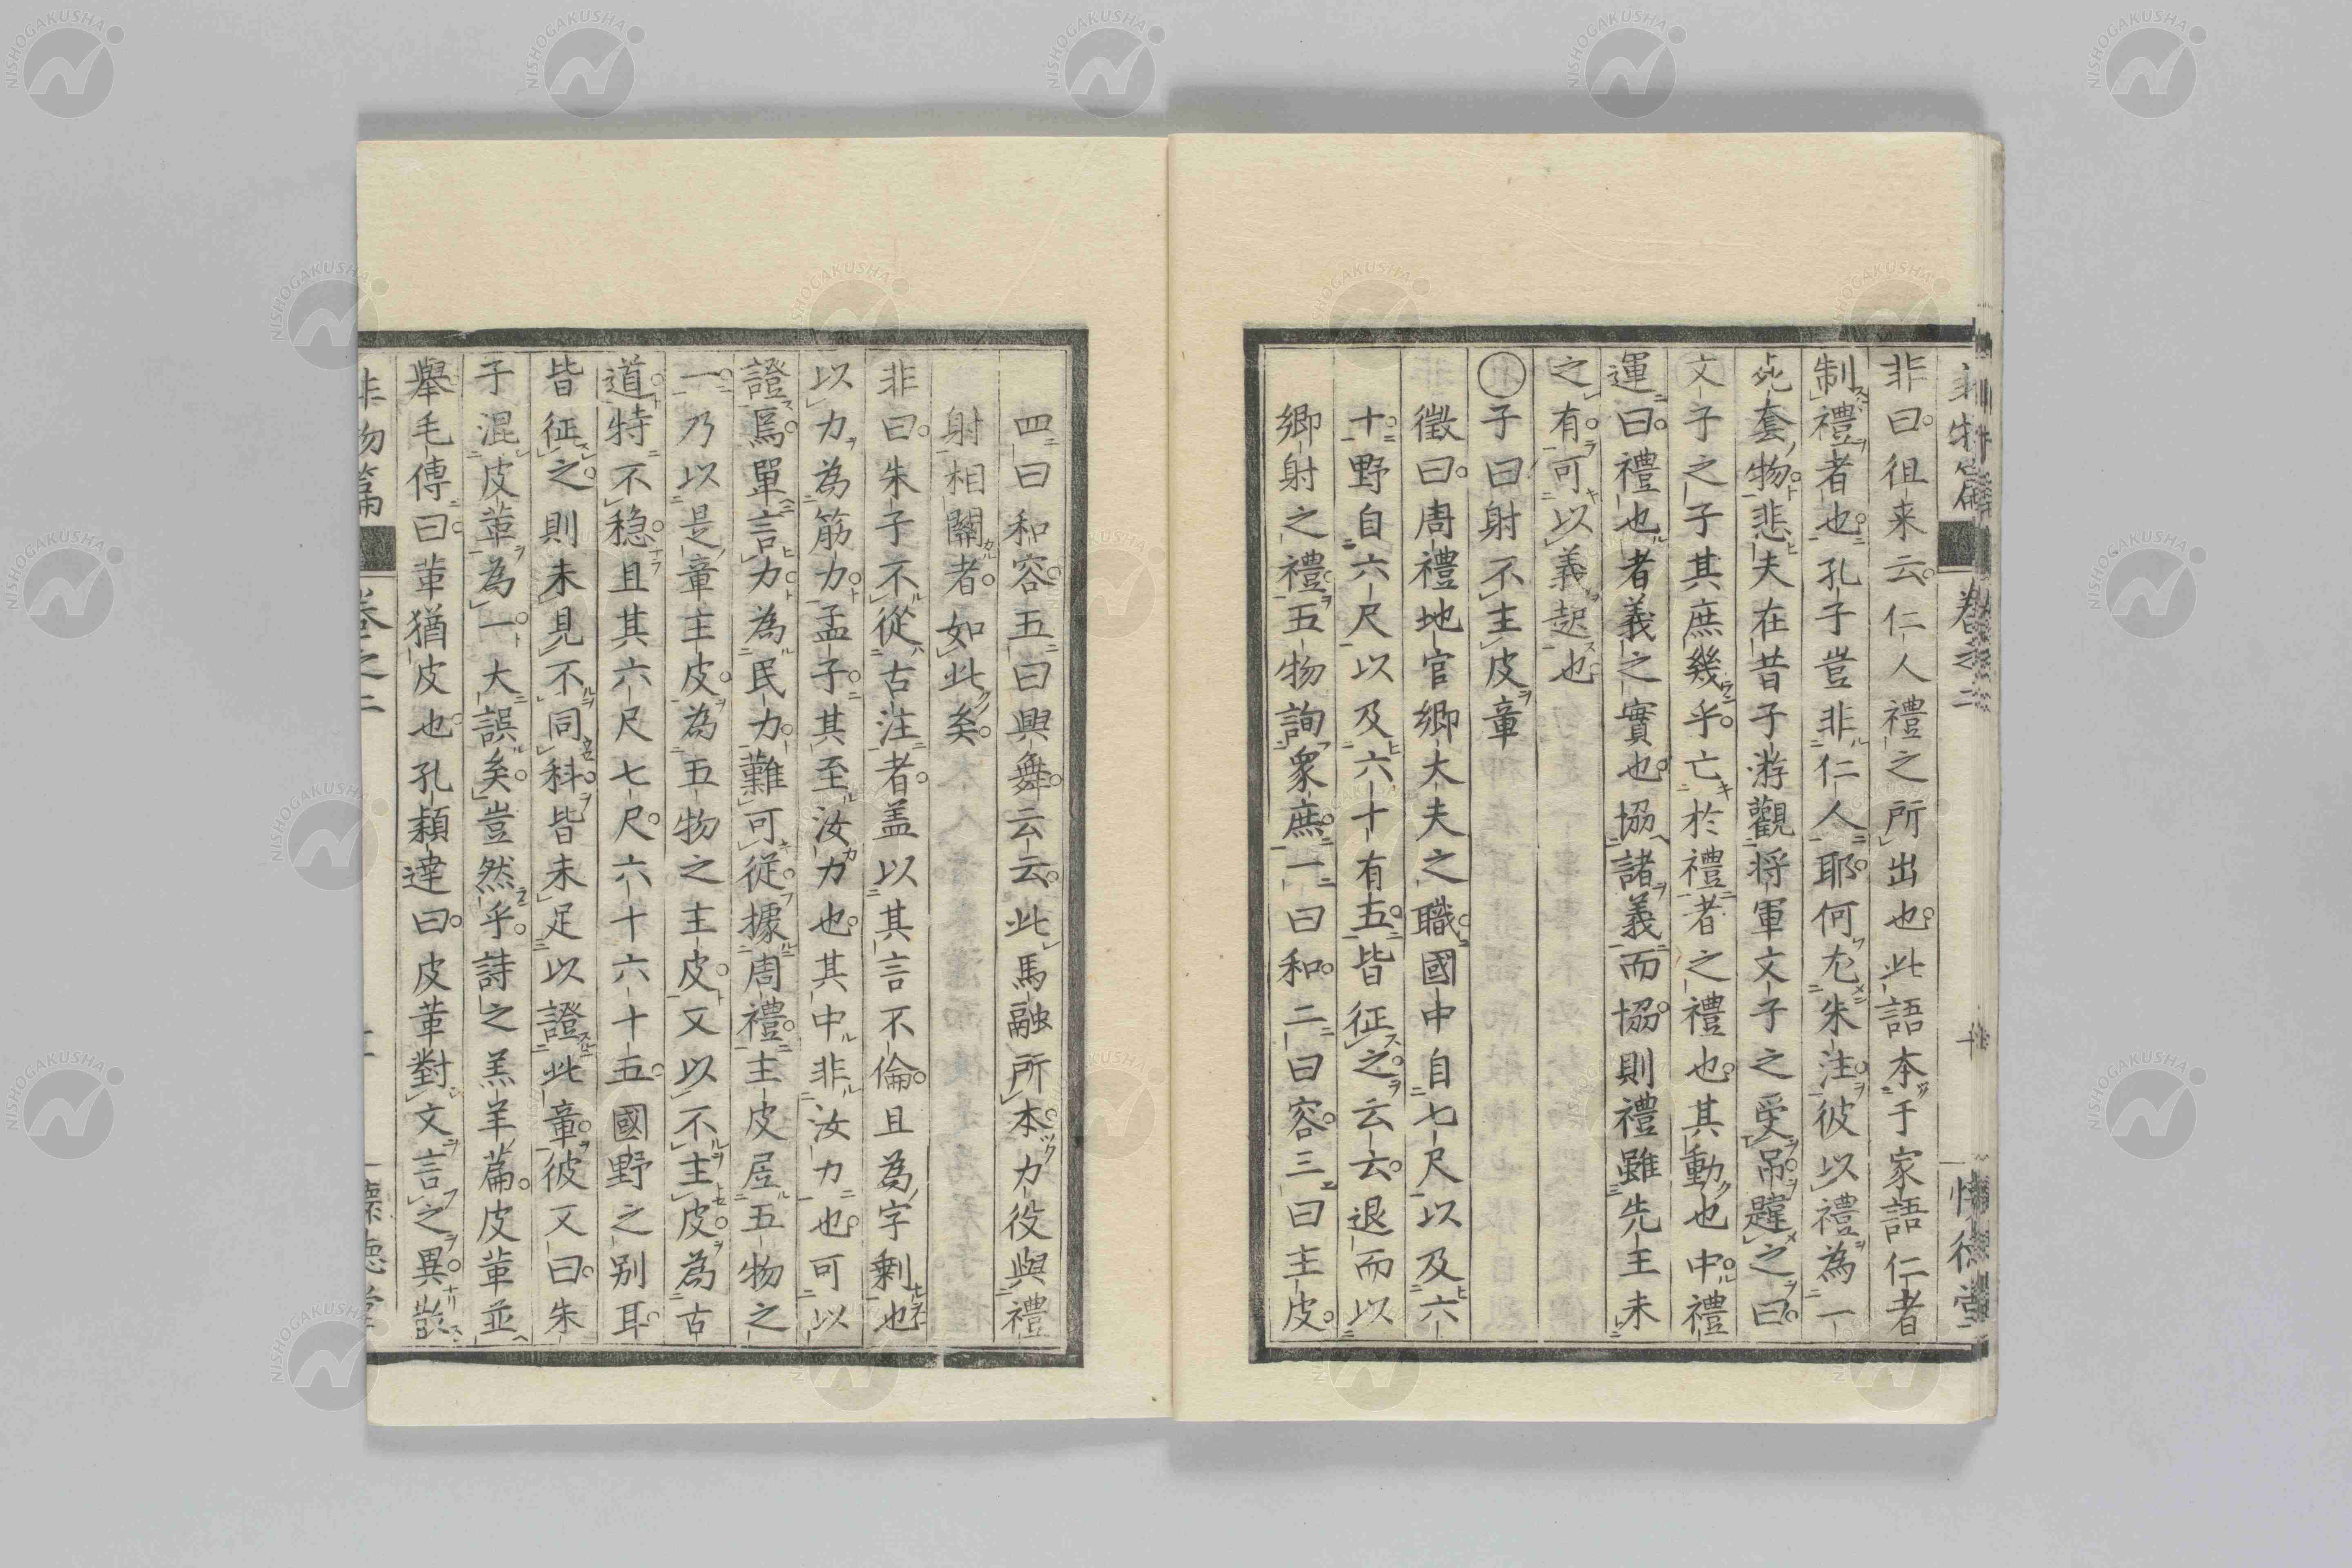 非物篇 卷之二 懷德堂
非曰徂来云仁人禮之所出也此語本于家語仁者
制禮者也孔子豈非仁人耶何尤朱注彼以禮為一
死套物悲夫在昔子游觀将軍文子之受吊韙之曰
文子之子其庶幾乎亡於禮者之禮也其動也中禮
運曰禮也者義之實也協諸義而協則禮雖先王未
之有可以義起也
〇子曰射不主皮章
徵曰周禮地官鄉大夫之職國中自七尺以及六
十野自六尺以及六十有五皆征之云云退而以
鄉射之禮五物詢衆庶一曰和二曰容三曰主皮
四曰和容五曰興舞云云此馬融所本力役與禮
射相關者如此矣
非曰朱子不從古注者盖以其言不倫且為字剩也
以力為筋力孟子其至汝力也其中非汝力也可以
證焉單言力為民力難可從據周禮主皮居五物之
一乃以是章主皮為五物之主皮又以不主皮為古
道特不穏且其六尺七尺六十六十五國野之别耳
皆征之則未見不同科皆未足以證此章彼又曰朱
子混皮革為一大誤矣豈然乎詩之羔羊篇皮革並
舉毛傳曰革猶皮也孔穎達曰皮革對文言之異散
非物篇 卷之二 懷德堂